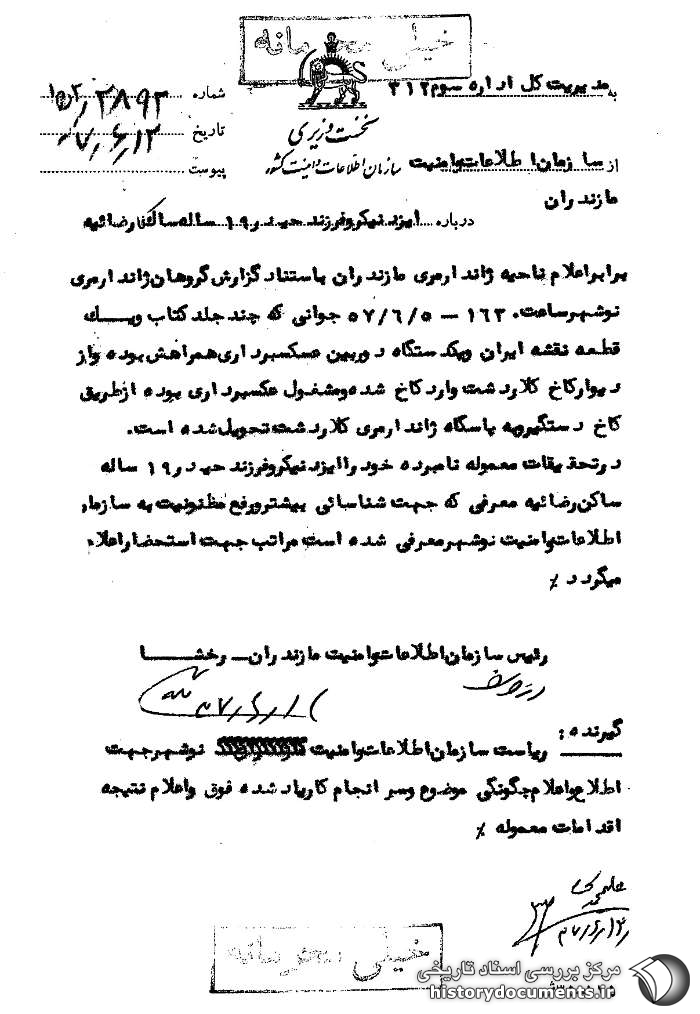 خیلی محرمانه
به مدیریت کل اداره سوم ۳۱۲
شماره
تاریخ ۵۷٫۶٫۱۲
پیوست
نخست وزیری
سازمان اطلاعات و امنیت کشور
از سازمان اطلاعات وامنیت
مازندران
درباره ایزد نیکروفرزند حیدر ۱۹ ساله ساکن رضائیه
برابراعلام ناحیه ژاندارمری مازندران باستناد گزارش گروهان ژاندارمری
نوشهرساعت ۱۶۳۰ - ۵۷/۶/۵ جوانی که چند جلد کتاب ویک
قطعه نقشه ایران ویکدستگاه دوربین عسکسبرداری همراهش بوده واز
دیوارکاخ کلاردشت وارد کاخ شده ومشغول عکسبرداری بوده ازطریق
کاخ دستگیروبه پاسگاه ژاندارمری کلاردشت تحویل شده است.
درتحقیقات معموله نامبرده خود را ایزد نیکروفرزند حیدر ۱۹ ساله
ساکن رضائیه معرفی که جهت شناسائی بیشترورفع مظنونیت به سازمان
اطلاعات وامنیت نوشهرمعرفی شده است مراتب جهت استحضاراعلام
میگردد ٪
رئیس سازمان اطلاعات وامنیت مازندران ـ رخشا
گیرنده :
ریاست سازمان اطلاعات وامنیت نوشهرجهت
اطلاع واعلام چگونگی موضوع وسر انجام کاریاد شده فوق واعلام نتیجه
اقدامات معموله ٪
خیلی محرمانه
مرکز بررسی اسناد تاریخی
historydocuments.ir